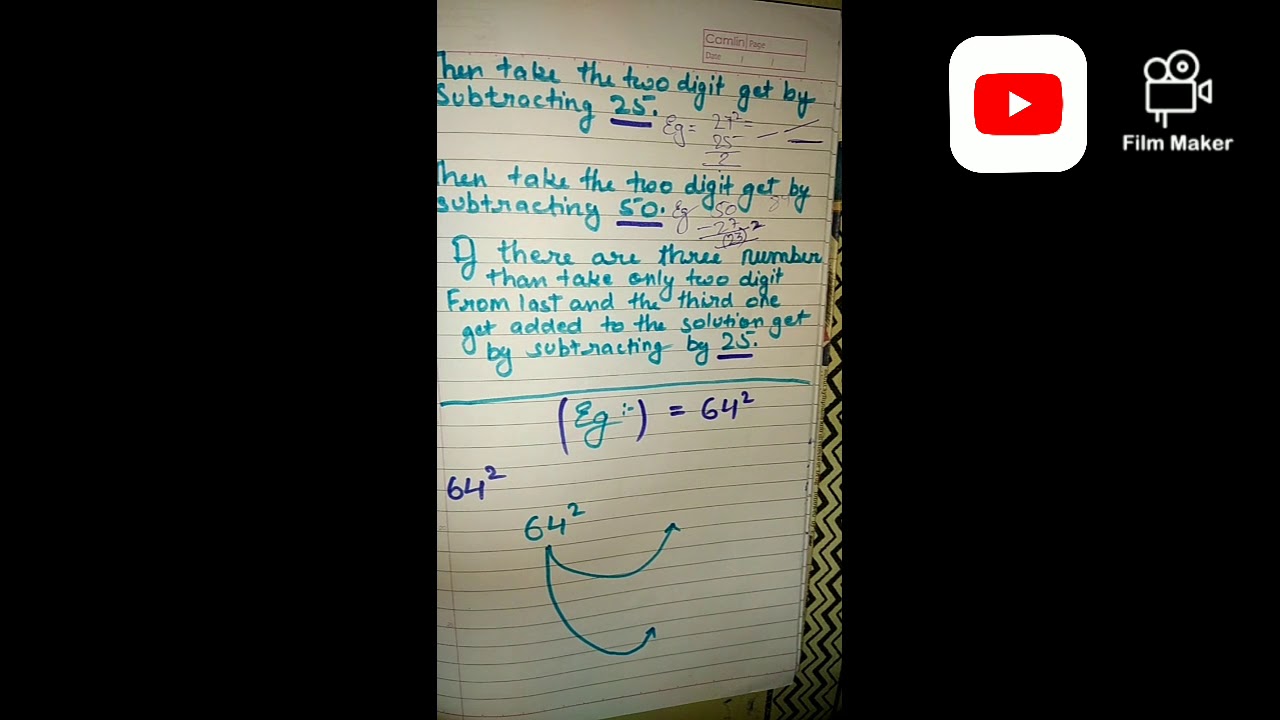 Camlin Page
Date / /
hen take the two digit get by
Subtracting 25.
Eg = 27² =
25
2
hen take the two digit get by
subtracting 50. Eg 50
- 27 - 2
23
If there are three number
than take only two digit
From last and the third one
get added to the solution get
by subtracting by 25.
(Eg :-) = 64²
64²
64²
Film Maker